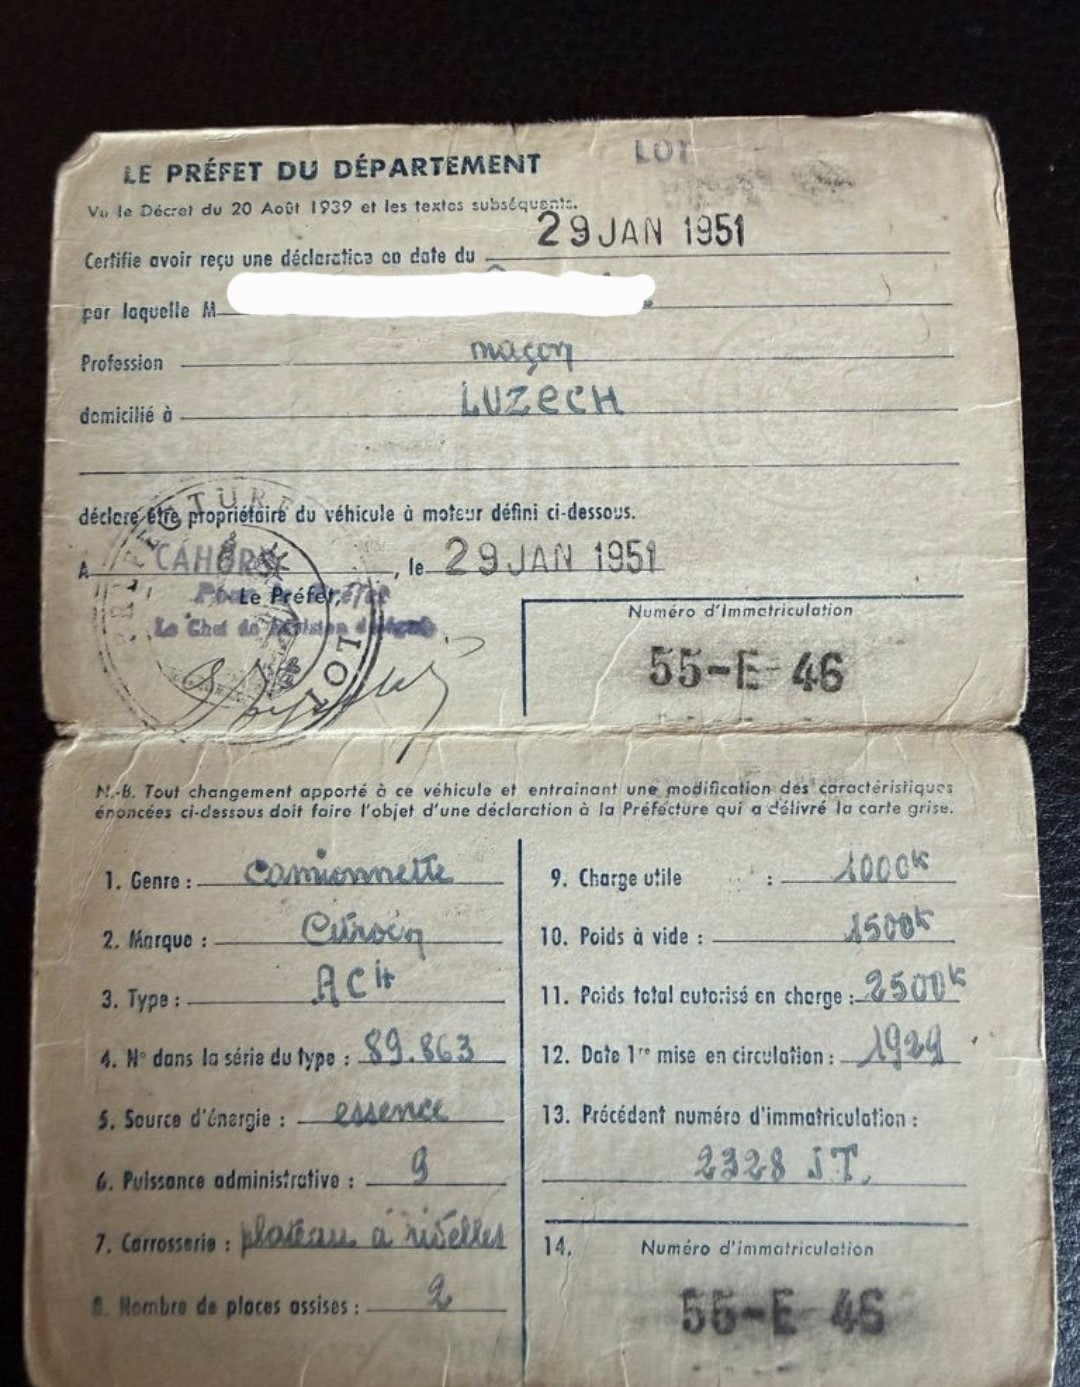 LE PRÉFET DU DÉPARTEMENT LOT
Vu le Décret du 20 Août 1939 et les textes subséquents.
Certifie avoir reçu une déclaration en date du 29 JAN 1951
par laquelle M
Profession maçon
domicilié à LUZECH
déclare être propriétaire du véhicule à moteur défini ci-dessous.
A CAHORS, le 29 JAN 1951
Le Préfet,
PRÉFECTURE
LOT
Numéro d'Immatriculation
55-E-46
N.-B. Tout changement apporté à ce véhicule et entrainant une modification des caractéristiques
énoncées ci-dessous doit faire l'objet d'une déclaration à la Préfecture qui a délivré la carte grise.
1. Genre : camionnette
2. Marque : Citroën
3. Type : AC4
4. N° dans la série du type : 89.863
5. Source d'énergie : essence
6. Puissance administrative : 9
7. Carrosserie : plateau à ridelles
8. Nombre de places assises : 2
9. Charge utile : 1000k
10. Poids à vide : 1500k
11. Poids total autorisé en charge : 2500k
12. Date 1re mise en circulation : 1929
13. Précédent numéro d'immatriculation :
2328 JT.
14. Numéro d'immatriculation
55-E-46